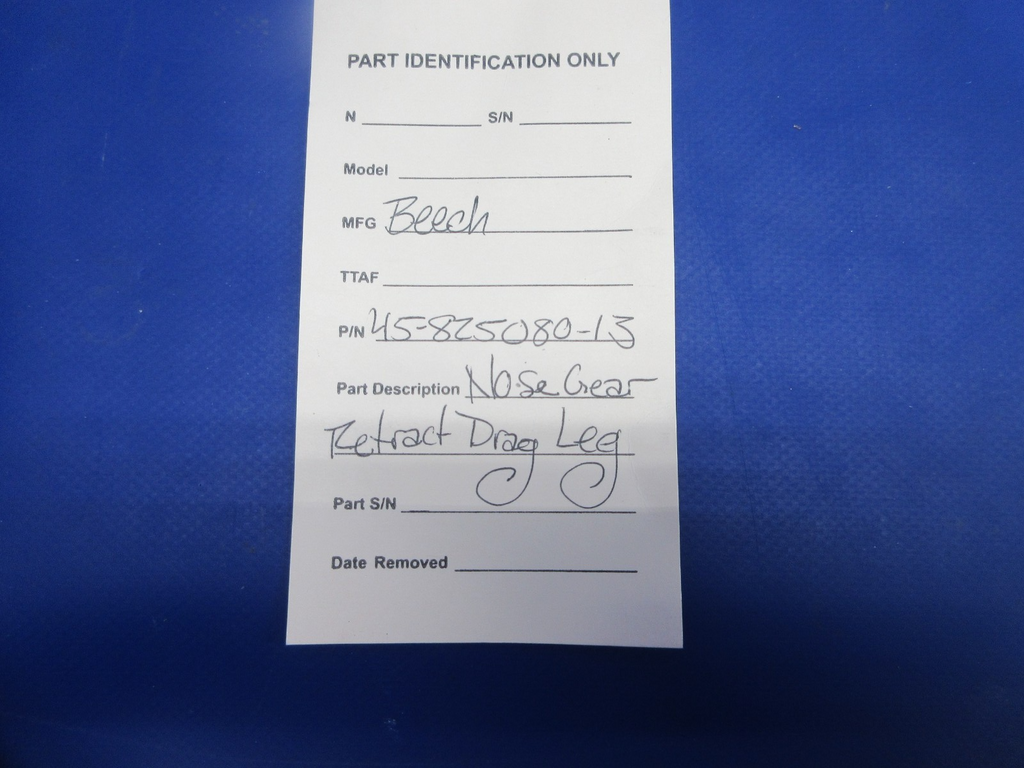 PART IDENTIFICATION ONLY
N ____________ S/N ____________
Model ____________
MFG Beech
TTAF ____________
P/N 45-825080-13
Part Description Nose Gear
Retract Drag Leg
Part S/N ____________
Date Removed ____________